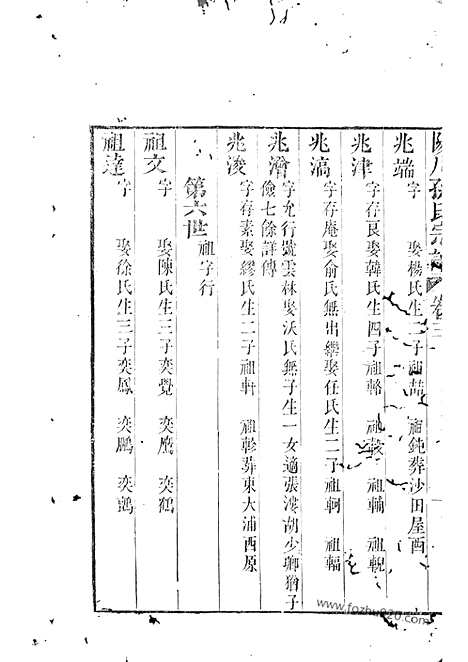 孫氏宗譜 卷三
兆端 字 娶楊氏生二子祖喆 祖鈍葬沙田屋西
兆津 字存艮娶韓氏生四子祖輅 祖 祖輔 祖輗
兆滈 字存庵娶俞氏無出繼娶任氏生二子祖軻 祖輻
兆澮 字允行號雲林娶沃氏無子生一女適張漊胡少卿猶子
儉七餘詳傳
兆浚 字存素娶繆氏生二子祖軒 祖軫葬東大浦西原
第六世 祖字行
祖文 字 娶陳氏生三子奕覺 奕鷹 奕鶴
祖達 字 娶徐氏生三子奕鳳 奕鵬 奕鷁
www.fozhu920.com